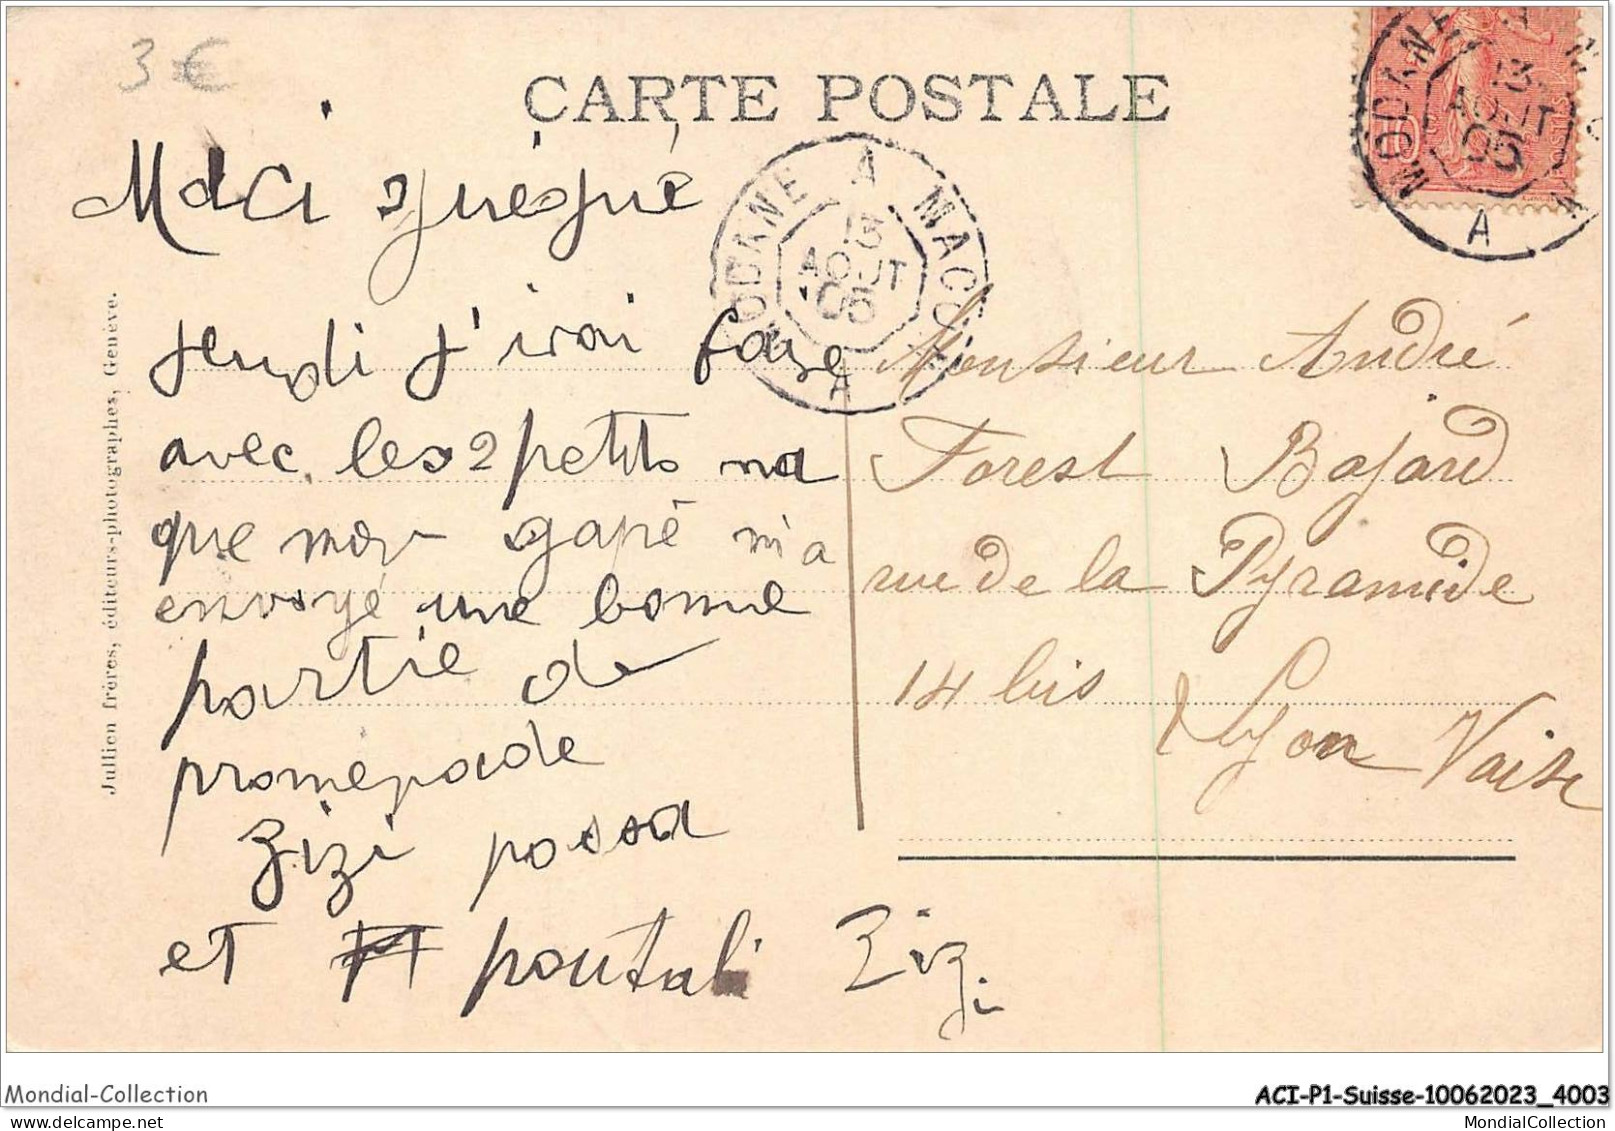 3 €
CARTE POSTALE
MODANE A MACO
13
AOUT
05
A
MODANE
13
AOUT
05
A
jeudi j'irai faire
avec les 2 petits na
que mon gapé m'a
envoyé une bonne
partie de
promenade
Zizi possa
et poutali Zizi
Monsieur André
Forest Bajard
rue de la Pyramide
14 bis
Lyon Vaise
Jullien frères, éditeurs-photographes, Genève.
Mondial-Collection
ACI-P1-Suisse-10062023_4003
MondialCollection